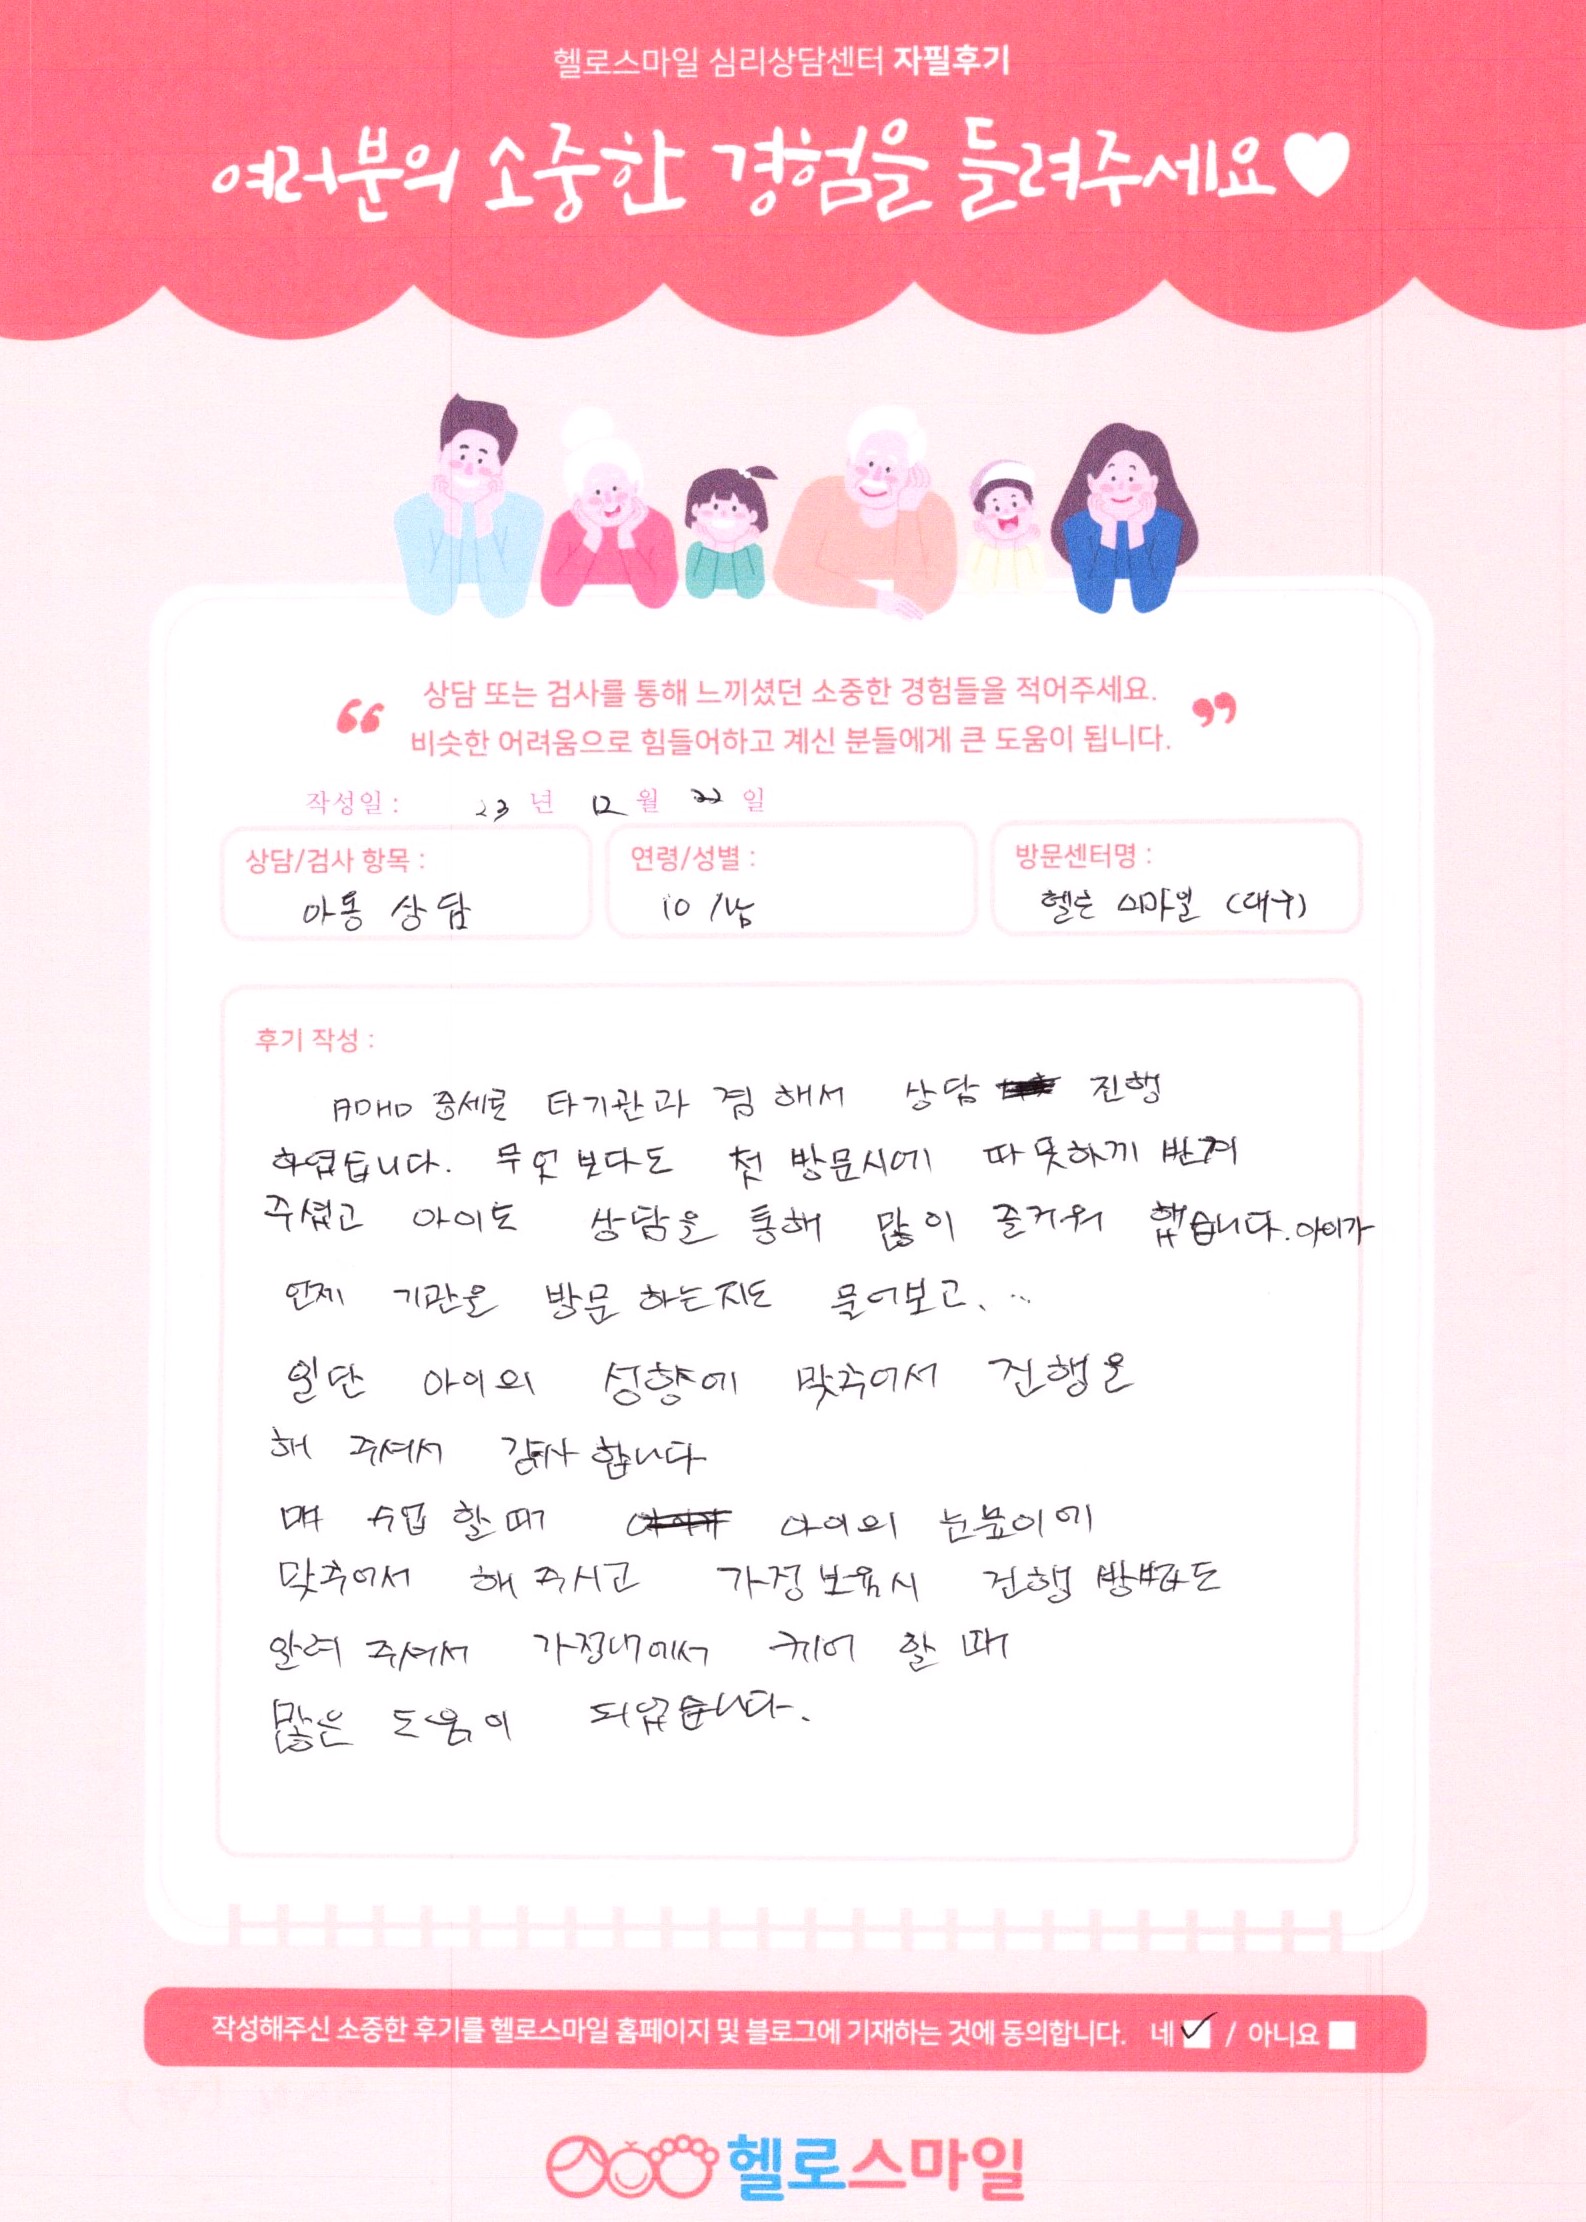 헬로스마일 심리상담센터 자필후기
여러분의 소중한 경험을 들려주세요
상담 또는 검사를 통해 느끼셨던 소중한 경험들을 적어주세요.
비슷한 어려움으로 힘들어하고 계신 분들에게 큰 도움이 됩니다.
작성일 : 23 년 12 월 22 일
상담/검사 항목 : 연령/성별 : 방문센터명 :
아동 상담 10 /남 헬로 스마일 (대구)
후기 작성 :
ADHD 증세로 타기관과 겸 해서 상담 진행
하였습니다. 무엇보다도 첫 방문시에 따뜻하게 반겨
주셨고 아이도 상담을 통해 많이 즐거워 했습니다. 아이가
언제 기관을 방문 하는지도 물어보고. ..
일단 아이의 성향에 맞추어서 진행을
해 주셔서 감사 합니다
매 수업 할때 아이의 눈높이에
맞추어서 해 주시고 가정보육시 진행 방법도
알려 주셔서 가정내에서 케어 할 때
많은 도움이 되었습니다.
작성해주신 소중한 후기를 헬로스마일 홈페이지 및 블로그에 기재하는 것에 동의합니다. 네 / 아니요
헬로스마일